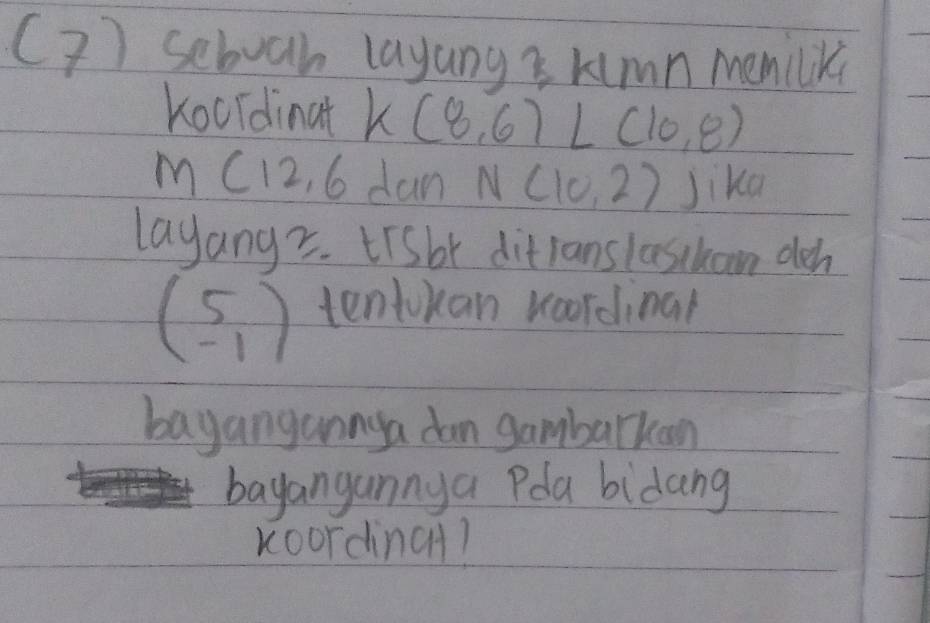 (7) Sebuah layang2 klmn memiliki
koordinat k (8,6) L (10,8)
M (12,6 dan N (10,2) Jika
layang2. trsbt ditranslasikan oleh
(5 -1) tentukan koordinat
bayangannya dan gambarkan
bayangannya Pda bidang
koordinat)